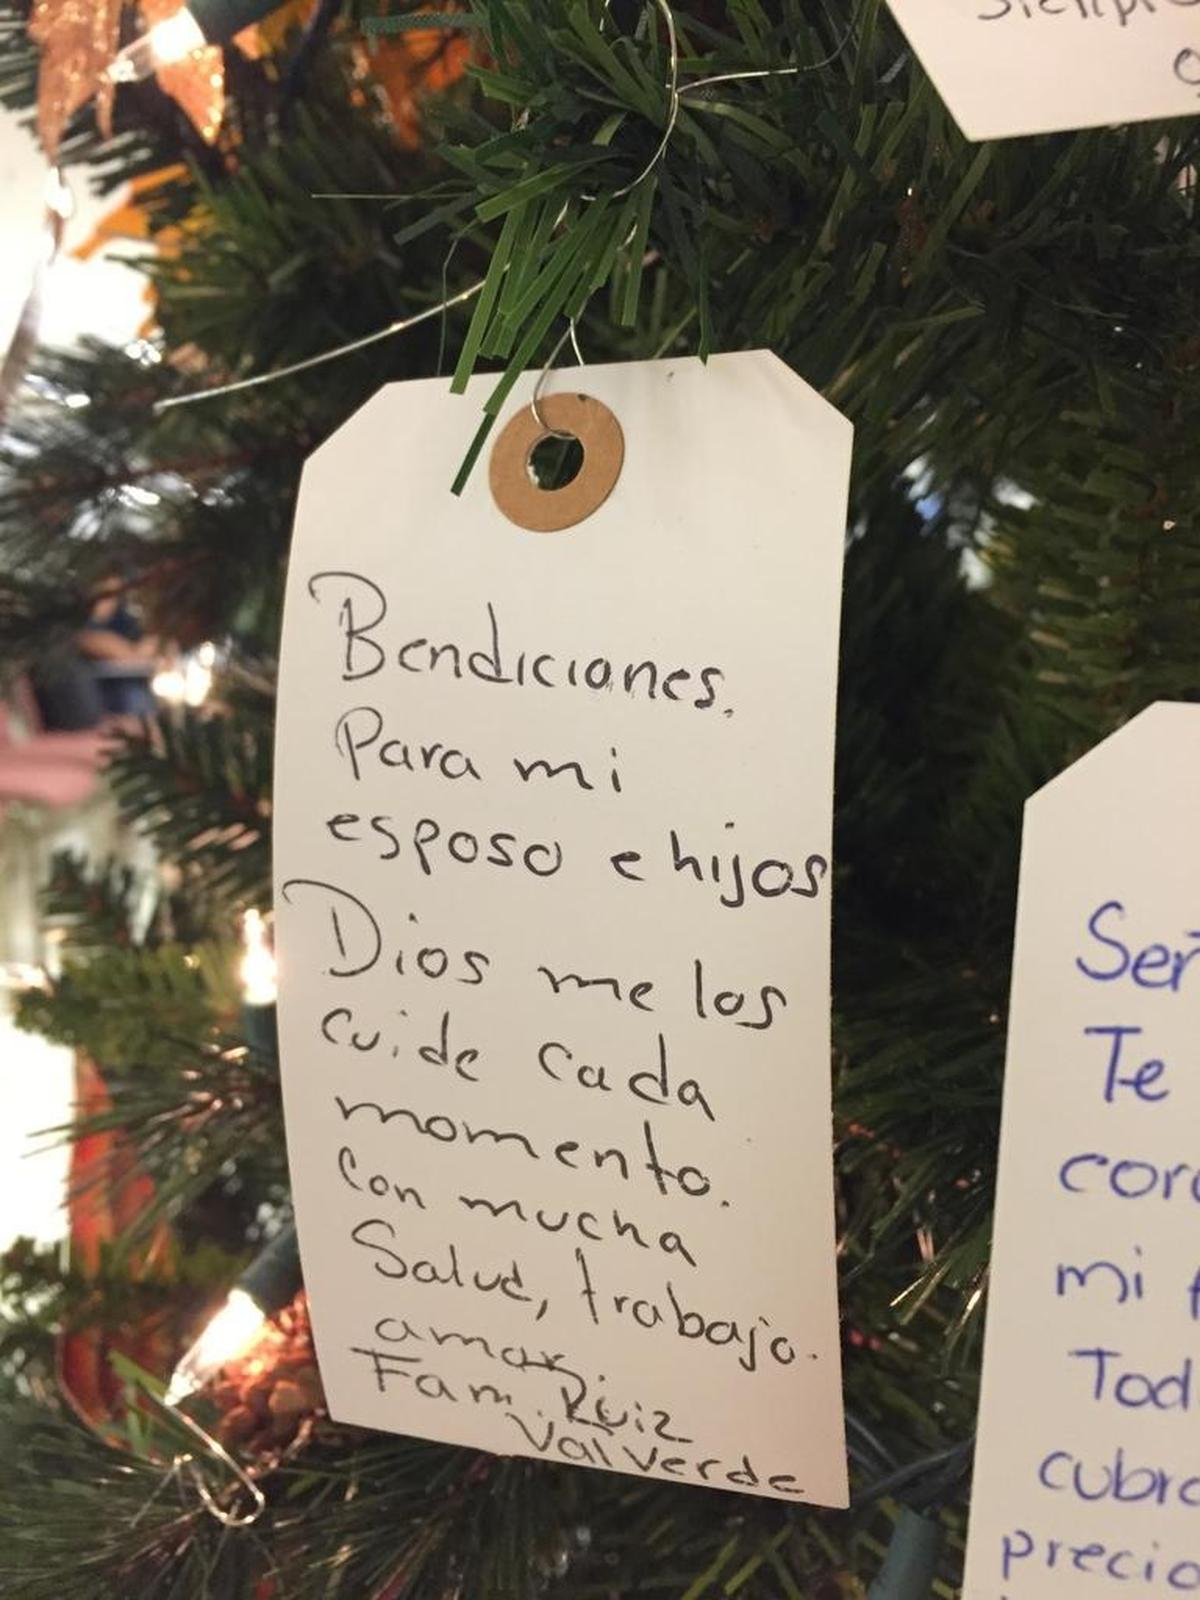 Siempre
Bendiciones.
Para mi
esposo e hijos
Dios me los
cuide cada
momento.
Con mucha
Salud, trabajo.
amor.
Fam. Ruiz
Valverde
Señ
Te
cora
mi f
Tod
cubra
precio